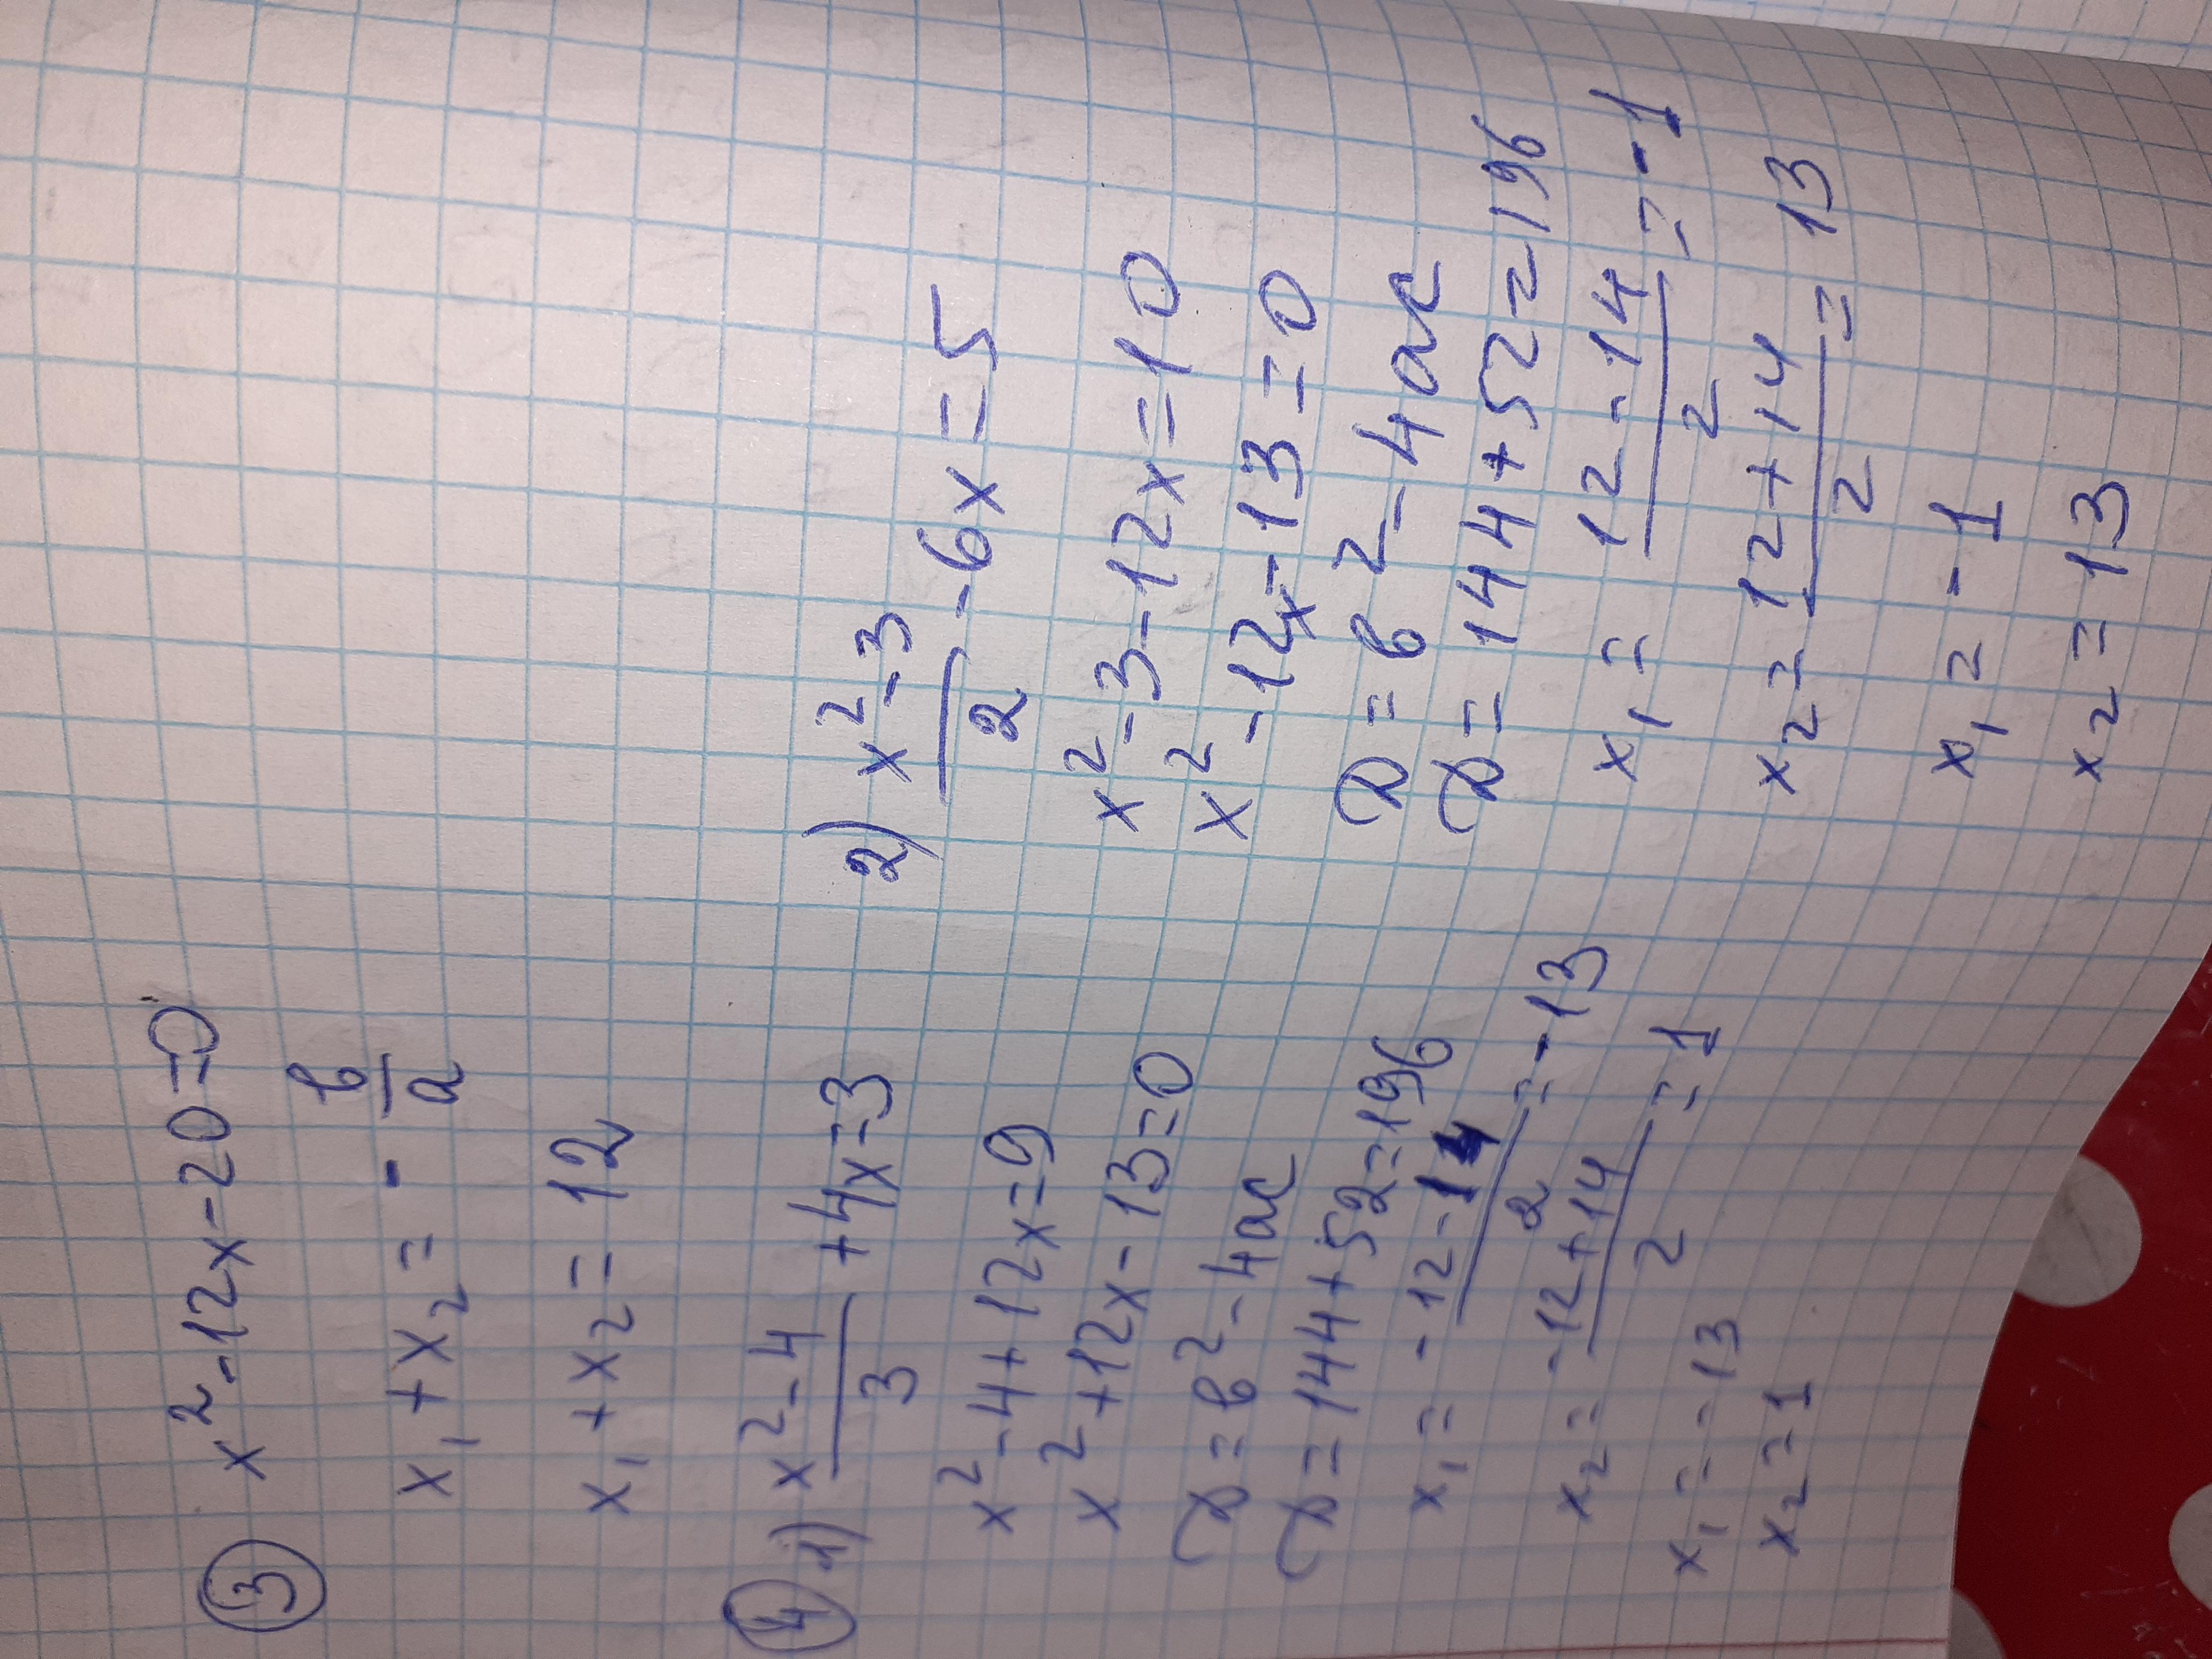 ③ x² - 12x - 20 = 0
x₁ + x₂ = - в/a
x₁ + x₂ = 12
④ 1) (x² - 4)/3 + 4x = 3
x² - 4 + 12x = 9
x² + 12x - 13 = 0
D = в² - 4ac
D = 144 + 52 = 196
x₁ = (-12 - 14)/2 = -13
x₂ = (-12 + 14)/2 = 1
x₁ = -13
x₂ = 1
2) (x² - 3)/2 - 6x = 5
x² - 3 - 12x = 10
x² - 12x - 13 = 0
D = в² - 4ac
D = 144 + 52 = 196
x₁ = (12 - 14)/2 = -1
x₂ = (12 + 14)/2 = 13
x₁ = -1
x₂ = 13